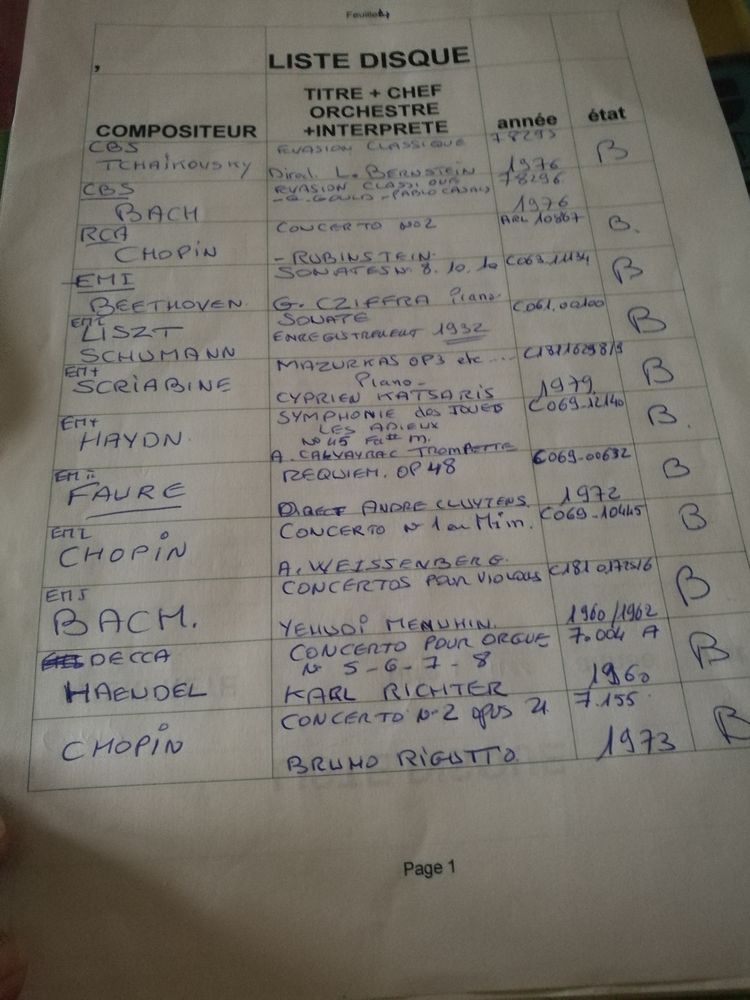 Feuille1
LISTE DISQUE
COMPOSITEUR
TITRE + CHEF
ORCHESTRE
+INTERPRETE
année
état
CBS
TCHAÏKOVSKY
EVASION CLASSIQUE
Direct. L. BERNSTEIN
78295
1976
B
CBS
BACH
EVASION CLASSIQUE
-G. GOULD - PABLO CASALS
78296
1976
RCA
CHOPIN
CONCERTO NO2
- RUBINSTEIN.
ARL 10867
B.
EMI
BEETHOVEN.
SONATES N° 8. 10. 10
G. CZIFFRA Piano.
C063.11134
B
EMI
LISZT
SCHUMANN
SONATE
ENREGISTREMENT 1932
C061.00100
B
EMI
SCRIABINE
MAZURKAS OP3 etc ....
Piano-
CYPRIEN KATSARIS
1979
B
EMI
HAYDN.
SYMPHONIE des JOUETS
LES ADIEUX
N° 45 Fa# m.
A. CALVAYRAC TROMPETTE
C069-12140
B.
EMI
FAURE
REQUIEM. OP 48
Direct ANDRE CLUYTENS.
C069-00632
1972
B
EMI
CHOPIN
CONCERTO N° 1 en Mi m.
A. WEISSENBERG.
C069-10445
B
EMI
BACH.
CONCERTOS pour violons
YEHUDI MENUHIN.
1960/1962
B
DECCA
HAENDEL
CONCERTO POUR ORGUE
N° 5-6-7-8
KARL RICHTER
7.004 A
1960
B
CHOPIN
CONCERTO N°2 opus 21
BRUNO RIGUTTO.
7.155.
1973
B
Page 1